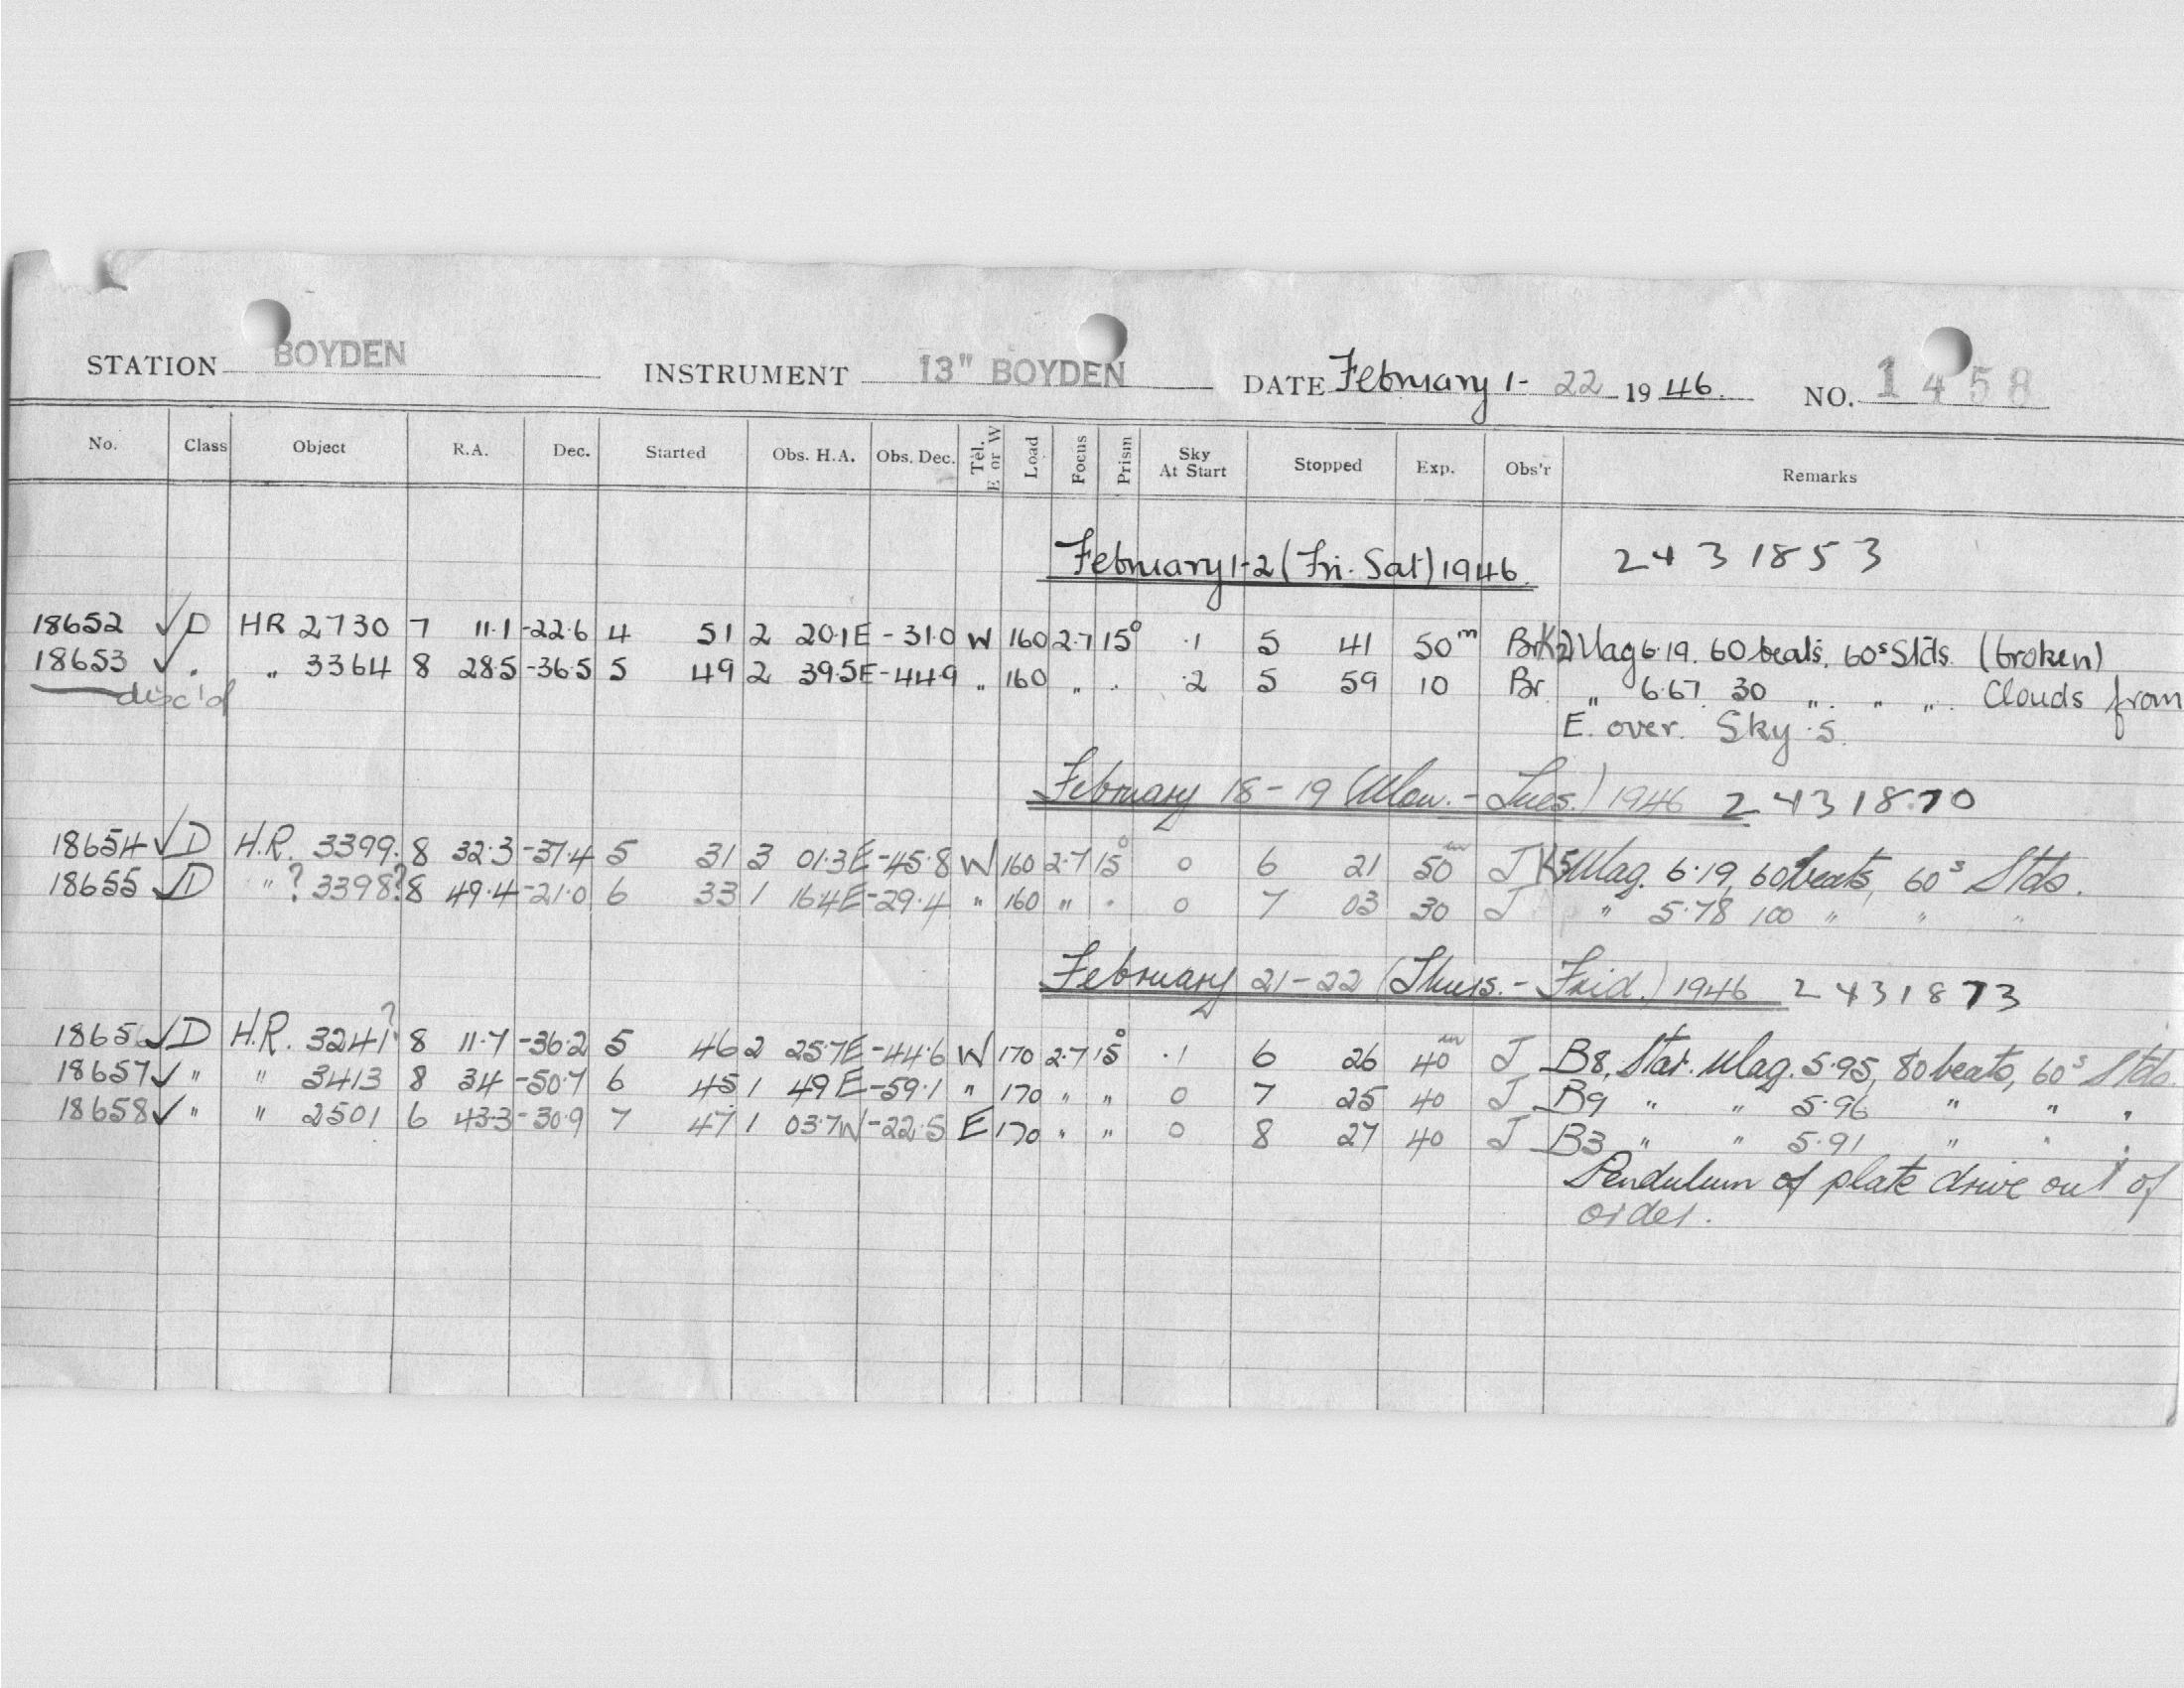 STATION BOYDEN INSTRUMENT 13" BOYDEN DATE February 1- 22 1946. NO. 1458
No. Class Object R.A. Dec. Started Obs. H.A. Obs. Dec. Tel. E or W Load Focus Prism Sky At Start Stopped Exp. Obs'r Remarks
February 1-2 (Fri. Sat) 1946. 2431853
18652 ✓ D HR 2730 7 11.1 -22.6 4 51 2 20.1E -31.0 W 160 2.7 15° .1 5 41 50m Br K2 Mag 6.19. 60 beats. 60s Stds. (broken)
18653 ✓ . „ 3364 8 28.5 -36.5 5 49 2 39.5E -44.9 „ 160 „ . .2 5 59 10 Br „ 6.67. 30 „ „ „. Clouds from
disc'd E. over. Sky .5.
February 18-19 (Mon. - Tues.) 1946 2431870
18654 ✓ D H.R. 3399. 8 32.3 -37.4 5 31 3 01.3E -45.8 W 160 2.7 15° 0 6 21 50m J K5 Mag. 6.19, 60 beats, 60s Stds.
18655 ✓ D " ? 3398? 8 49.4 -21.0 6 33 1 16.4E -29.4 " 160 " " 0 7 03 30 J " 5.78 100 " " "
February 21-22 (Thurs. - Frid.) 1946 2431873
1865 ✓ D H.R. 3241? 8 11.7 -36.2 5 46 2 25.7E -44.6 W 170 2.7 15° .1 6 26 40m J B8, Star. Mag. 5.95, 80 beats, 60s Stds.
18657 ✓ " " 3413 8 34 -50.7 6 45 1 49 E -59.1 " 170 " " 0 7 25 40 J B9 " " 5.96 " " "
18658 ✓ " " 2501 6 43.3 -30.9 7 47 1 03.7W -22.5 E 170 " " 0 8 27 40 J B3 " " 5.91 " " "
Pendulum of plate drive out of
order.